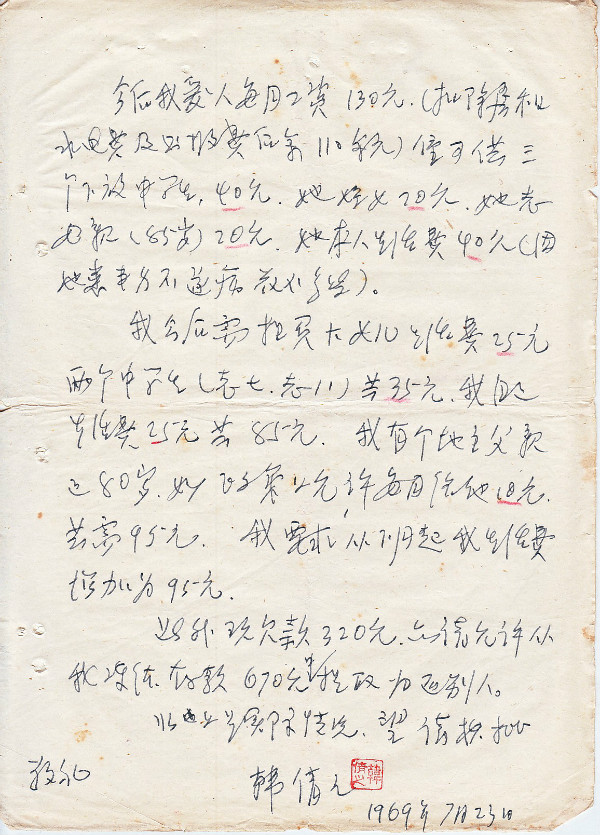 今后我爱人每月工资130元.(扣除房租
水电费及出版费后余110余元)仅可供三
个下放中学生,40元.她侄女20元.她老
母亲(85岁)20元.她本人生活费40元(因
她患半身不遂病
我今后需担负大女儿生活费25元
两个中学生(志七.志11)共35元.我自己
生活费25元共85元.我有个地主父亲
已80岁.如政策允许每月给他10元.
共需95元.我要求从7月起我生活费
增加为95元.
另外现欠款320元.亦请允许从
我冻结存款670元中提取为还别人。
以上是实际情况.望请核批
敬礼
韩倩之
1969年7月23日